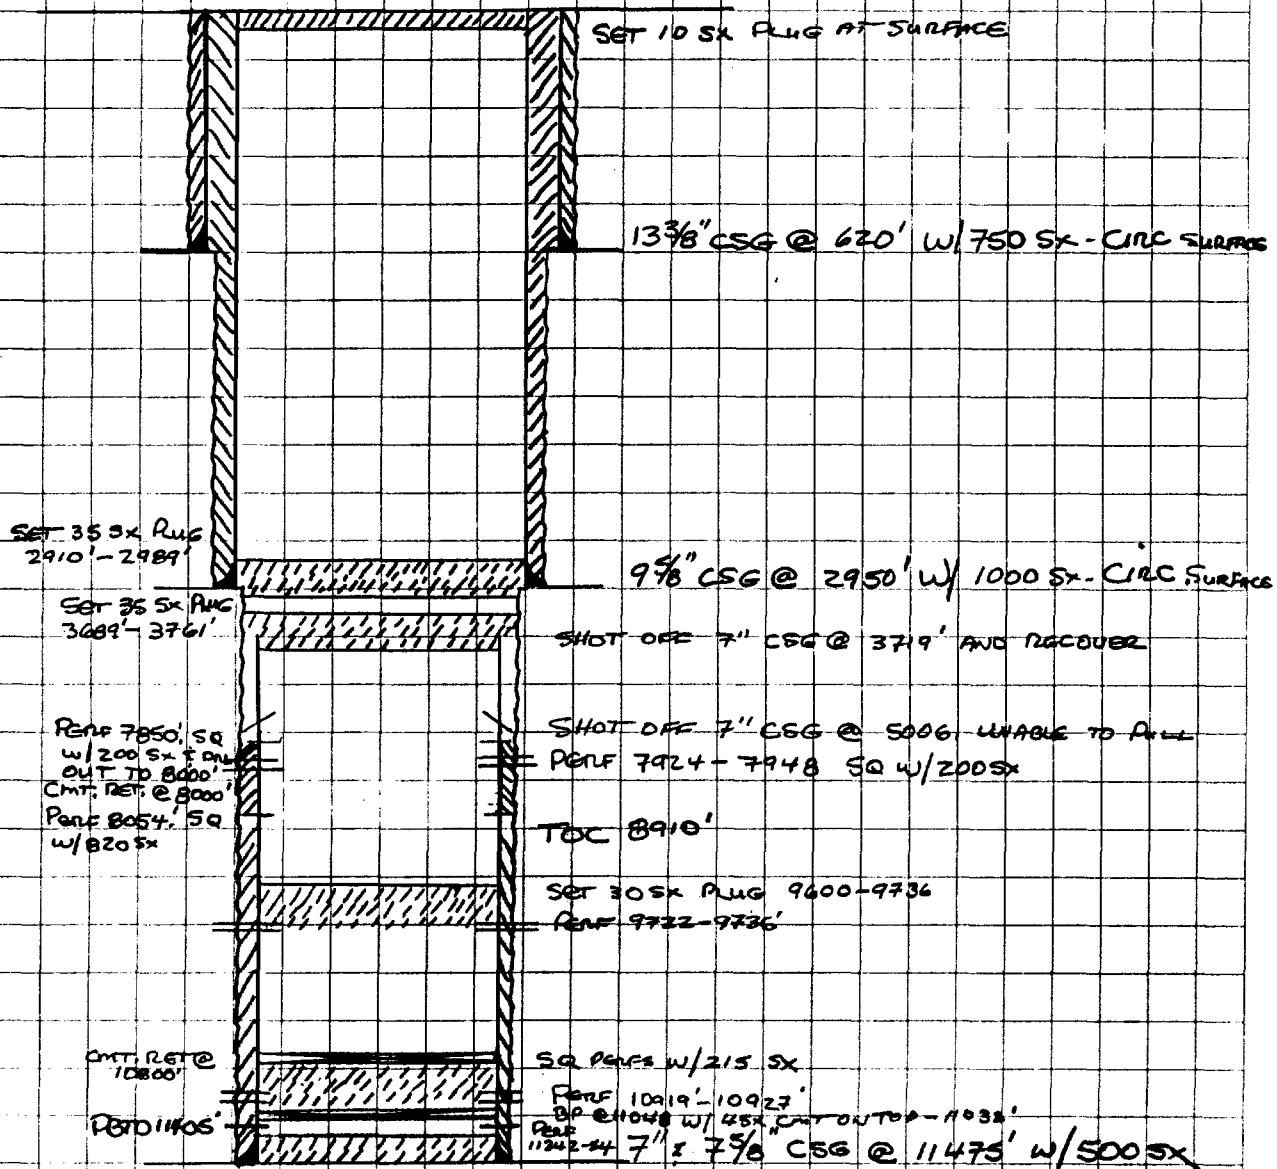 SET 10 SX PLUG AT SURFACE
13 3/8" CSG @ 620' W/ 750 SX - CIRC SURFACE
SET 35 SX PLUG
2910' - 2989'
9 5/8" CSG @ 2950' W/ 1000 SX - CIRC SURFACE
SET 35 SX PLUG
3689' - 3761'
SHOT OFF 7" CSG @ 3719' AND RECOVER
SHOT OFF 7" CSG @ 5006, UNABLE TO PULL
PERF 7850', SQ
W/ 200 SX & DRL
OUT TO 8000'
CMT. RET. @ 8000'
PERF 8054', SQ
W/ 820 SX
PERF 7924 - 7948 SQ W/ 200 SX
TOC 8910'
SET 30 SX PLUG 9600-9736
PERF 9722-9736'
CMT. RET @
10800'
SQ PERFS W/ 215 SX
PERF 10919' - 10927'
BP @ 11048 W/ 4 SX CMT ON TOP - 11038'
PBTD 11405'
PERF
11242-44
7" & 7 5/8" CSG @ 11475' W/ 500 SX